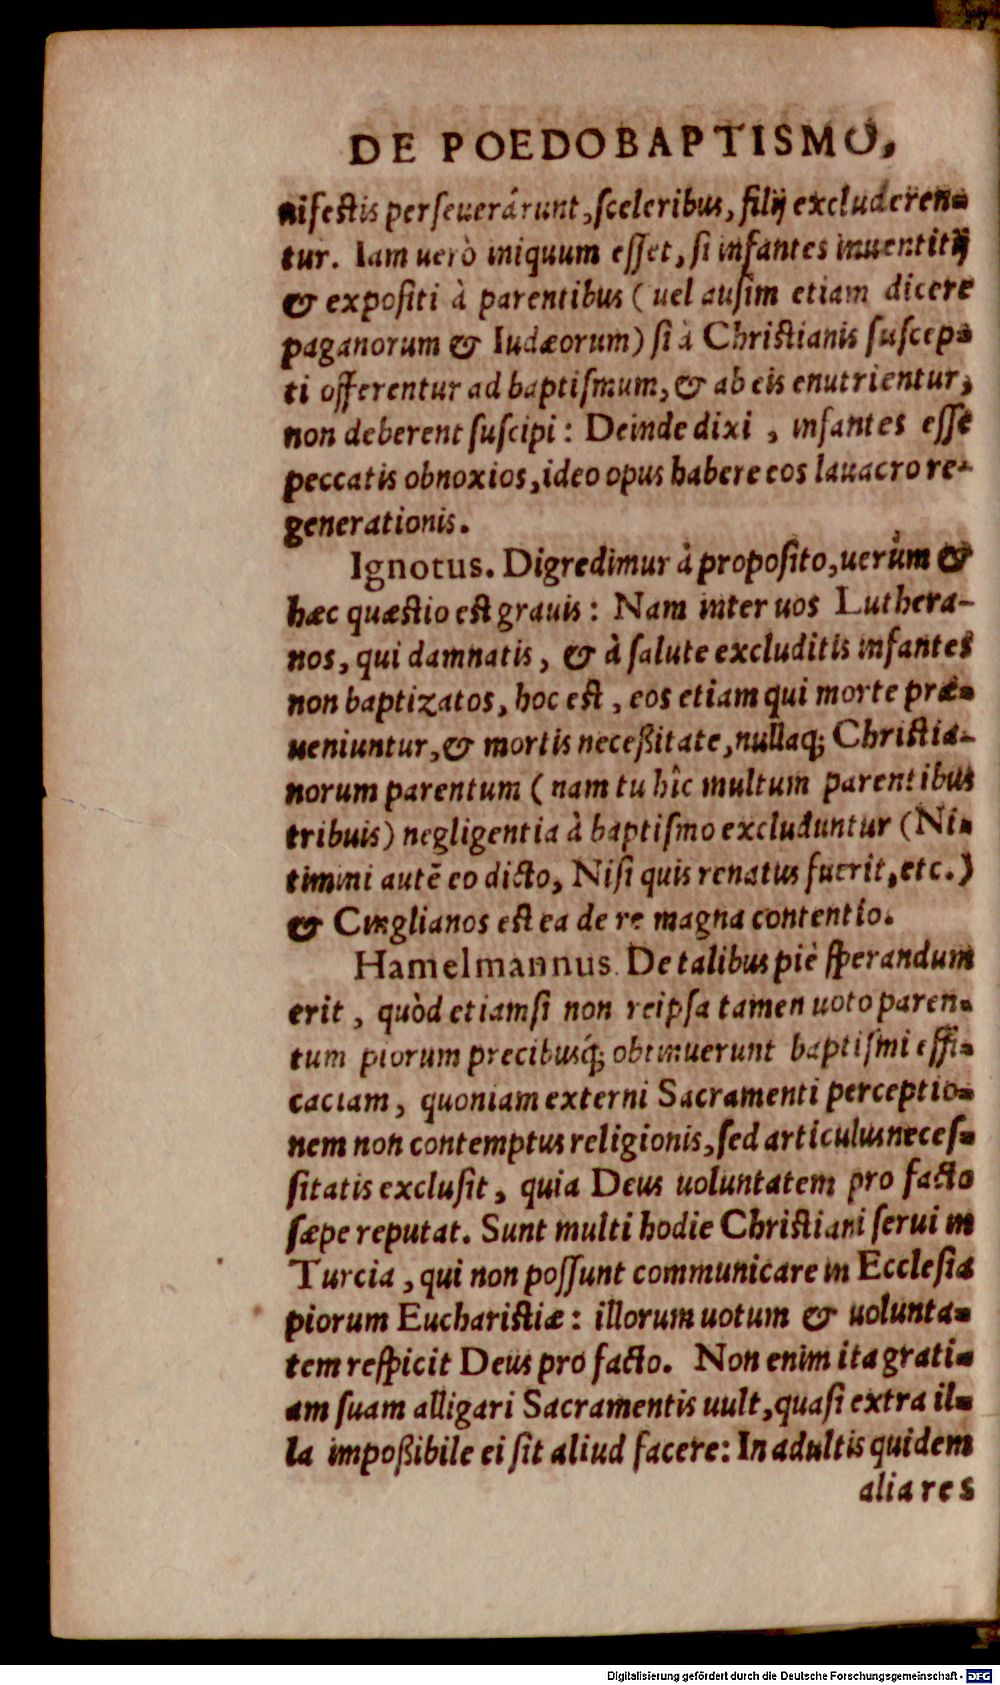 DE POEDOBAPTISMO,
nifestis perseuerárunt, sceleribus, filij excluderen-
tur. Iam uerò iniquum esset, si infantes inuentitij
& expositi à parentibus (uel ausim etiam dicere
paganorum & Iudæorum) si à Christianis suscep-
ti offerentur ad baptismum, & ab eis enutrientur,
non deberent suscipi: Deinde dixi, infantes esse
peccatis obnoxios, ideo opus habere eos lauacro re-
generationis.
Ignotus. Digredimur à proposito, uerùm &
hæc quæstio est grauis: Nam inter uos Luthera-
nos, qui damnatis, & à salute excluditis infantes
non baptizatos, hoc est, eos etiam qui morte præ-
ueniuntur, & mortis neceßitate, nullaq; Christia-
norum parentum (nam tu hîc multum parentibus
tribuis) negligentia à baptismo excluduntur (Ni-
timini autē eo dicto, Nisi quis renatus fuerit, etc.)
& Cinglianos est ea de re magna contentio.
Hamelmannus. De talibus piè sperandum
erit, quòd etiamsi non reipsa tamen uoto paren-
tum piorum precibusq́; obtinuerunt baptismi effi-
caciam, quoniam externi Sacramenti perceptio-
nem non contemptus religionis, sed articulus neces-
sitatis exclusit, quia Deus uoluntatem pro facto
sæpe reputat. Sunt multi hodie Christiani serui in
Turcia, qui non possunt communicare in Ecclesia
piorum Eucharistiæ: illorum uotum & uolunta-
tem respicit Deus pro facto. Non enim ita grati-
am suam alligari Sacramentis uult, quasi extra il-
la impoßibile ei sit aliud facere: In adultis quidem
alia res
Digitalisierung gefördert durch die Deutsche Forschungsgemeinschaft - DFG